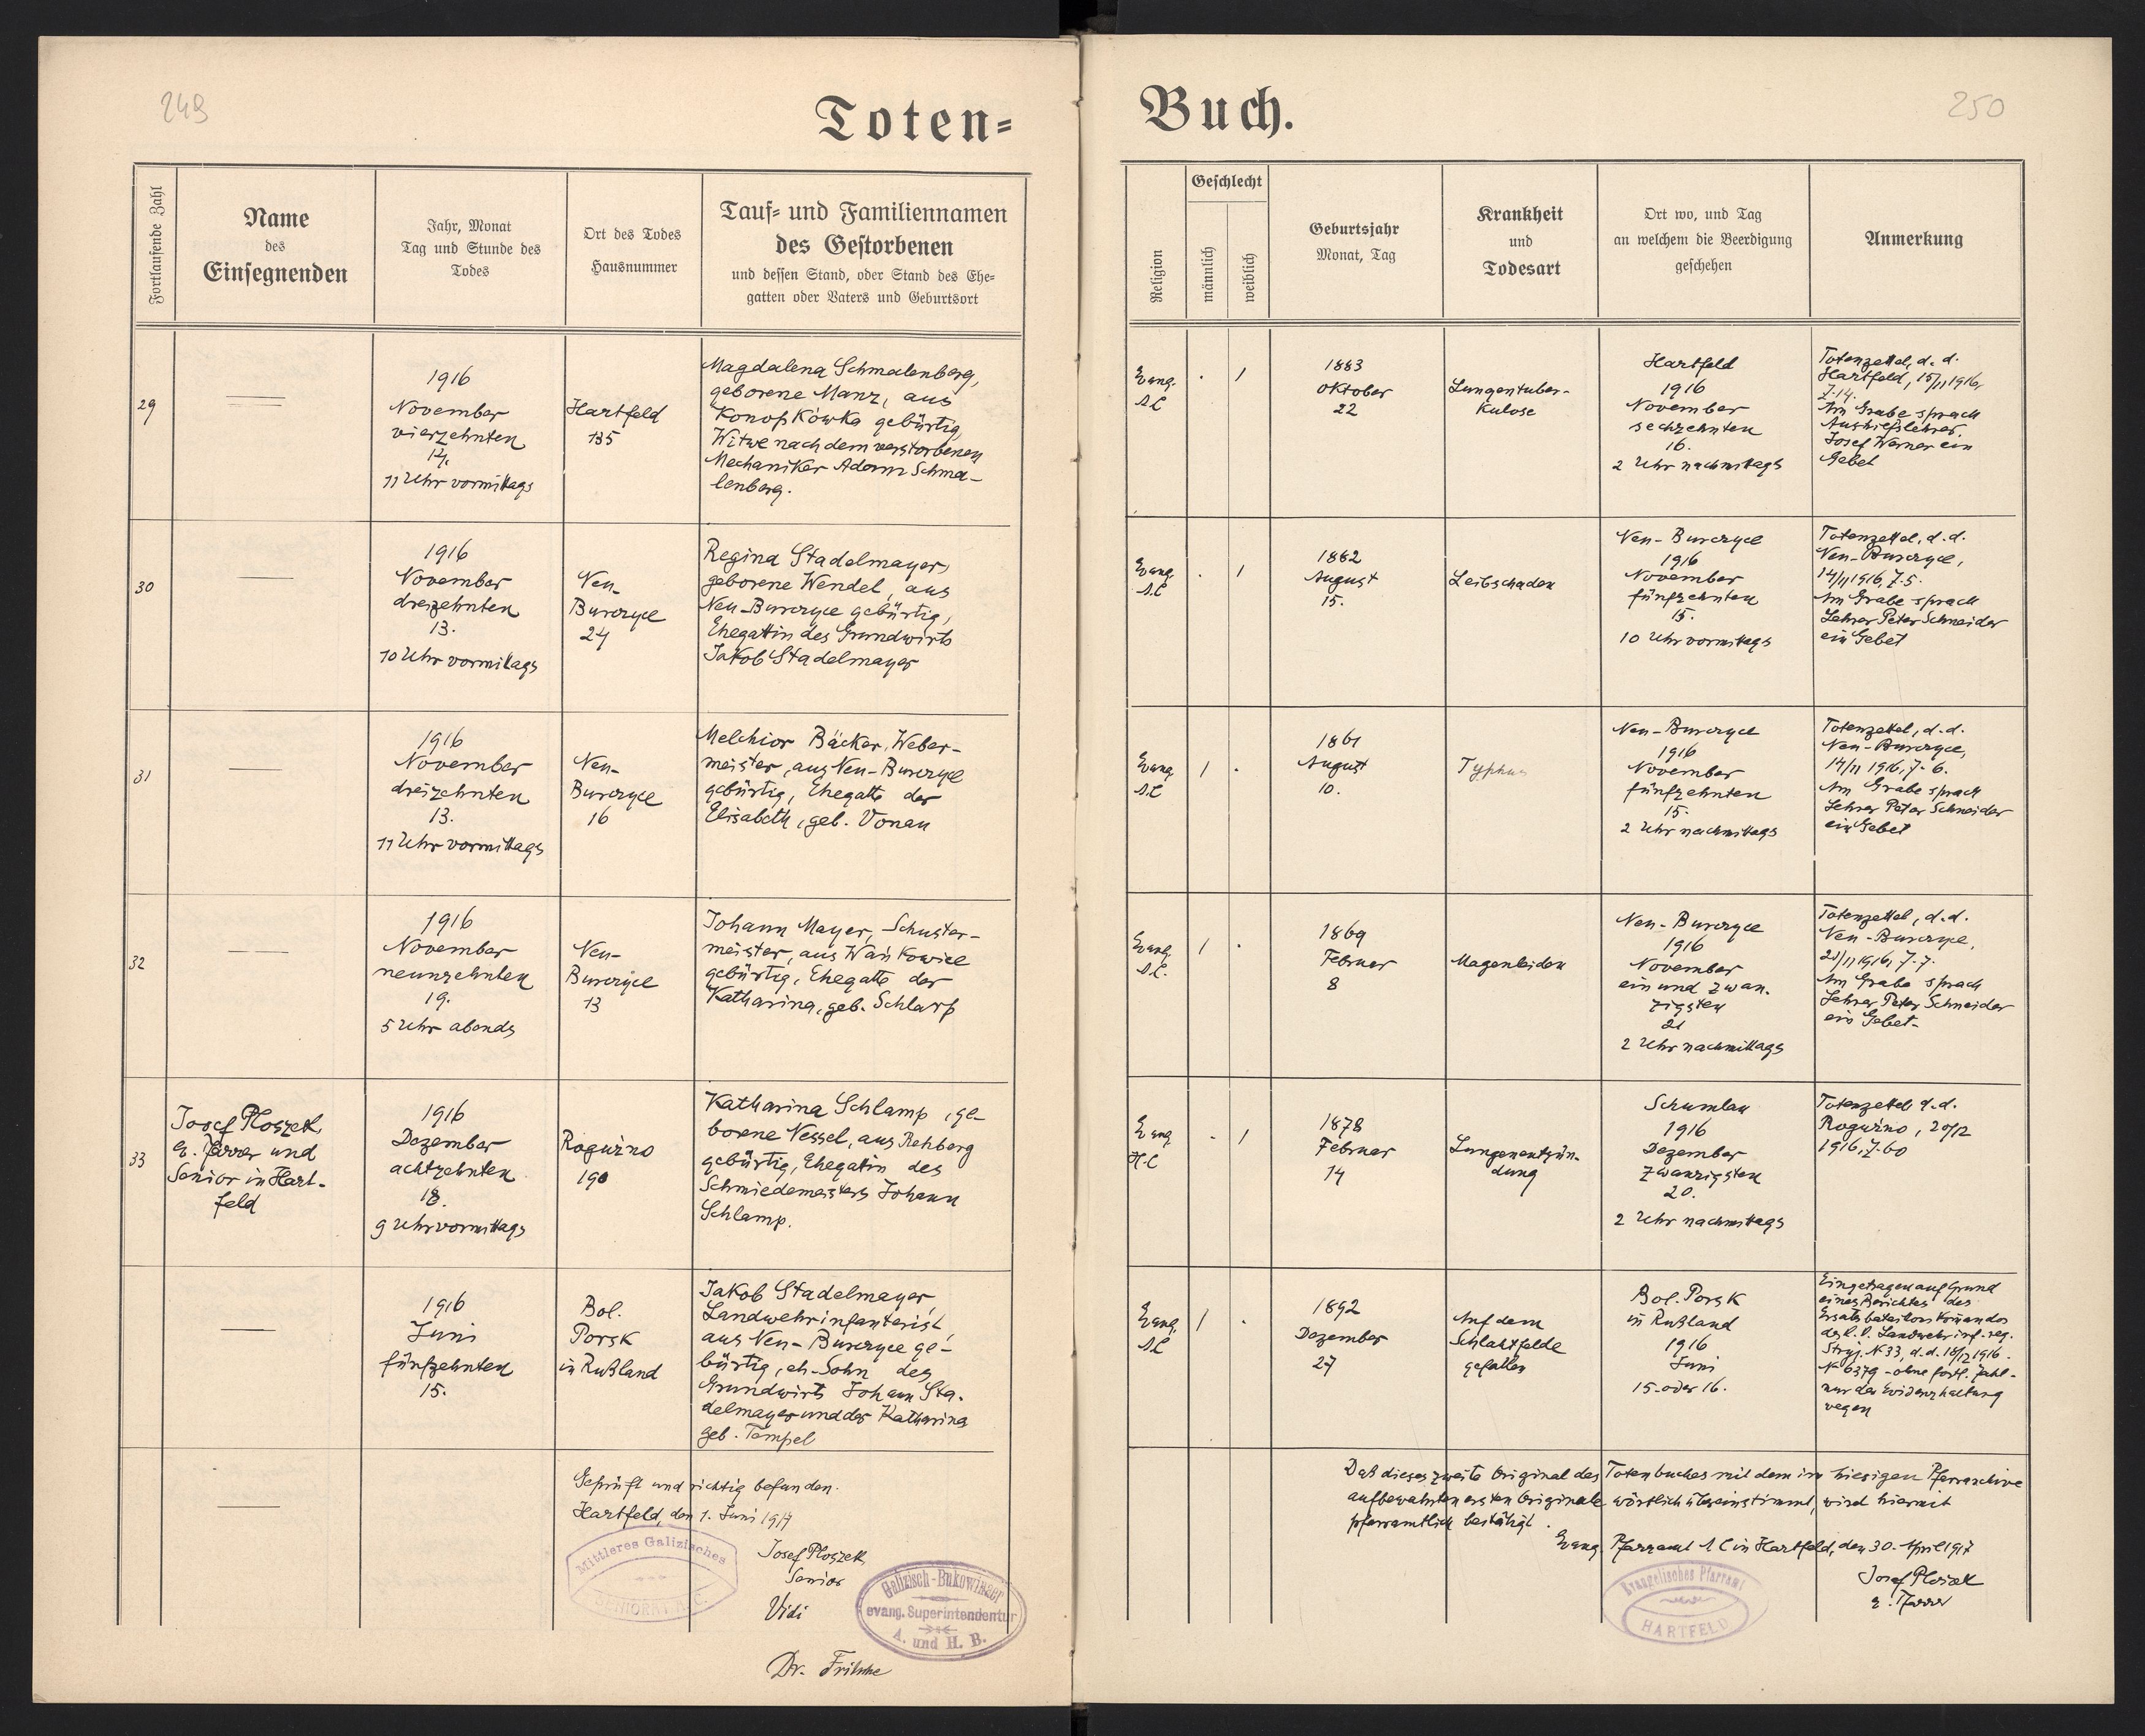 249
Toten=
Fortlaufende Zahl
Name
des
Einsegnenden
Jahr, Monat
Tag und Stunde des
Todes
Ort des Todes
Hausnummer
Tauf= und Familiennamen
des Gestorbenen
und dessen Stand, oder Stand des Ehe=
gatten oder Vaters und Geburtsort
29
1916
November
vierzehnten
14.
11 Uhr vormittags
Hartfeld
135
Magdalena Schmalenberg,
geborene Manz, aus
Konopkówka gebürtig,
Witwe nach dem verstorbenen
Mechaniker Adam Schma-
lenberg.
30
1916
November
dreizehnten
13.
10 Uhr vormittags
Neu-
Burczyce
24
Regina Stadelmayer,
geborene Wendel, aus
Neu-Burczyce gebürtig,
Ehegattin des Grundwirts
Jakob Stadelmayer
31
1916
November
dreizehnten
13.
11 Uhr vormittags
Neu-
Burczyce
16
Melchior Bäcker, Weber-
meister, aus Neu-Burczyce
gebürtig, Ehegatte der
Elisabeth, geb. Vonau
32
1916
November
neunzehnten
19.
5 Uhr abends
Neu-
Burczyce
13
Johann Mayer, Schuster-
meister, aus Wańkowice
gebürtig, Ehegatte der
Katharina, geb. Schlarp
33
Josef Ploszek,
e. Pfarrer und
Senior in Hart-
feld
1916
Dezember
achtzehnten
18.
9 Uhr vormittags
Rogużno
190
Katharina Schlamp, ge-
borene Nessel, aus Rehberg
gebürtig, Ehegattin des
Schmiedemeisters Johann
Schlamp.
1916
Juni
fünfzehnten
15.
Bol.
Porsk
in Rußland
Jakob Stadelmayer,
Landwehrinfanterist,
aus Neu-Burczyce ge-
bürtig, eh. Sohn des
Grundwirts Johann Sta-
delmayer und der Katharina
geb. Tempel
Geprüft und richtig befunden.
Hartfeld, den 1. Juni 1917
Mittleres Galizisches
SENIORAT A.C.
Josef Ploszek
Senior
Vidi
Galizisch-Bukowinaer
evang. Superintendentur
A. und H. B.
Dr.
250
Buch.
Religion
Geschlecht
männlich
weiblich
Geburtsjahr
Monat, Tag
Krankheit
und
Todesart
Ort wo, und Tag
an welchem die Beerdigung
geschehen
Anmerkung
Evang.
A.C
. 1
1883
Oktober
22
Lungentuber-
kulose
Hartfeld
1916
November
sechzehnten
16.
2 Uhr nachmittags
Totenzettel, d. d.
Hartfeld, 15/11 1916,
Z. 14.
Am Grabe sprach
Aushilfslehrer
Josef Werner ein
Gebet
Evang.
A.C
. 1
1882
August
15.
Leibschaden
Neu-Burczyce
1916
November
fünfzehnten
15.
10 Uhr vormittags
Totenzettel, d. d.
Neu-Burczyce,
14/11 1916, Z. 5.
Am Grabe sprach
Lehrer Peter Schneider
ein Gebet
Evang
A.C
1 .
1861
August
10.
Typhus
Neu-Burczyce
1916
November
fünfzehnten
15.
2 Uhr nachmittags
Totenzettel, d. d.
Neu-Burczyce,
14/11 1916, Z. 6.
Am Grabe sprach
Lehrer Peter Schneider
ein Gebet
Evang.
A.C.
1 .
1869
Februar
8
Magenleiden
Neu-Burczyce
1916
November
ein und zwan-
zigsten
21
2 Uhr nachmittags
Totenzettel, d. d.
Neu-Burczyce,
1916, Z. 7.
Am Grabe sprach
Lehrer Peter Schneider
ein Gebet.
Evang
H.C
. 1
1878
Februar
14
Lungenentzün-
dung
Schumlau
1916
Dezember
zwanzigsten
20.
2 Uhr nachmittags
Totenzettel d. d.
Rogużno, 20/12
1916, Z. 60
Evang.
A.C
1 .
1892
Dezember
27
Auf dem
Schlachtfelde
gefallen
Bol. Porsk
in Rußland
1916
Juni
15. oder 16.
Eingetragen auf Grund
eines Berichtes des
Ersatzbataillonskomandos
des k. k. Landwehrinf.-reg.
Stryj. N 33, d. d. 18/12 1916.
N 6379 - ohne fortl. Zahl -
nur der Evidenzhaltung
wegen
Daß dieses zweite Original des Totenbuches mit dem im hiesigen Pfarrarchive
aufbewahrten ersten Originale wörtlich übereinstimmt, wird hiermit
pfarramtlich bestätigt.
Evang. Pfarramt A C in Hartfeld, den 30. April 1917
Evangelisches Pfarramt
HARTFELD
Josef Ploszek
e. Pfarrer